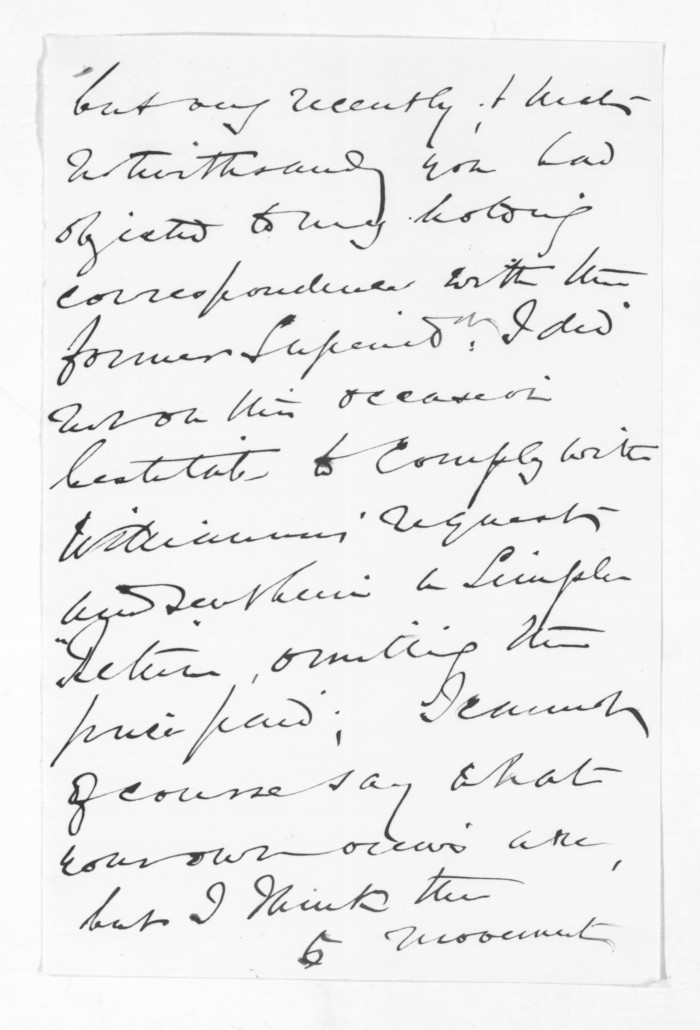 but very recently, & that
notwithsandg you had
objected to my holding
correspondence with the
former Superintdt. I did
not on this occasion
hesitate to comply with
Williamsons request
and sent him a Simple
"Return", omitting the
price paid; I cannot
of course say what
your own views are,
but I think the
5 movement